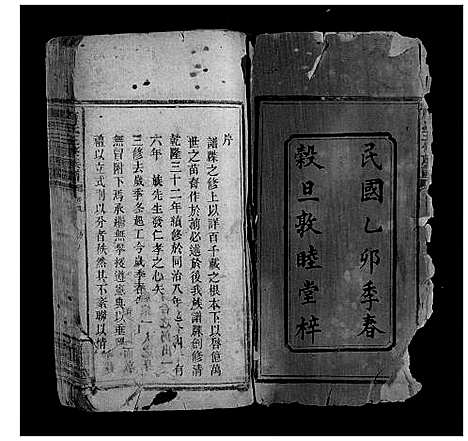 民國乙卯季春
穀旦敦睦堂梓
序
譜牒之修上以詳百千載之根本下以啓億萬
世之苗裔作於前必述於後我族譜牒創修清
乾隆三十二年續修於同治八年
有
六年 族先生發仁孝之心矢
三修去歲季冬起工今歲季春
無冒附下馬承繼無孽接遵憲典以垂
禮以立式明以分者秩然其不紊聯以情